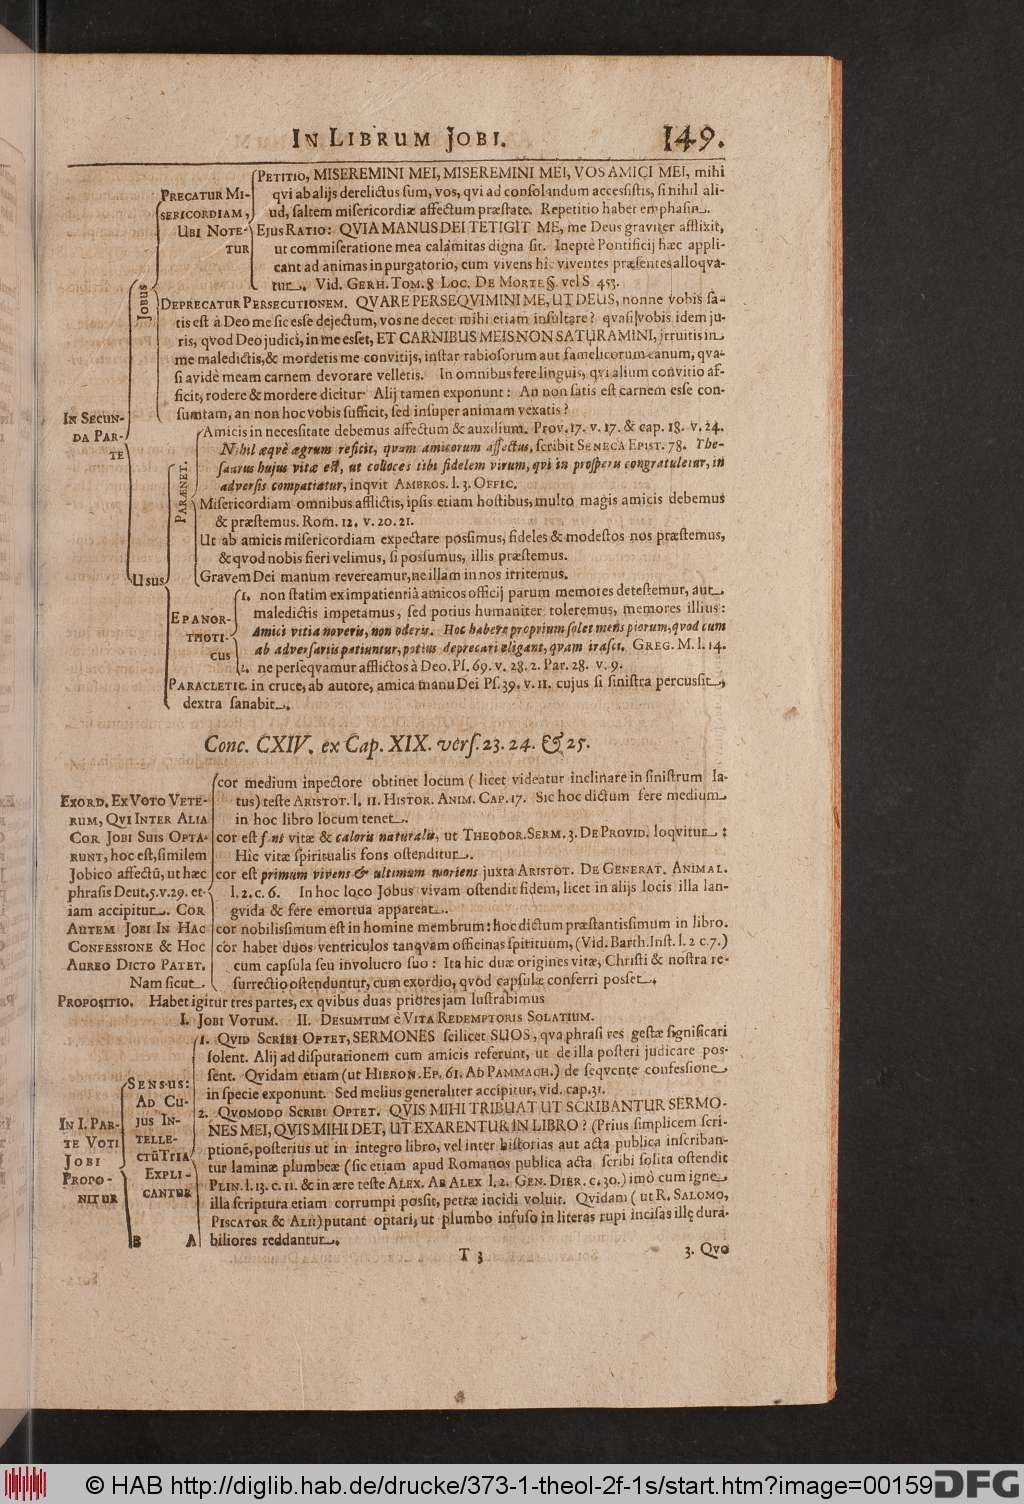 IN LIBRUM JOBI. 149.
PETITIO, MISEREMINI MEI, MISEREMINI MEI, VOS AMICI MEI, mihi
PRECATUR MI- qvi ab alijs derelictus ſum, vos, qvi ad conſolandum acceſſiſtis, ſi nihil ali-
SERICORDIAM, ud, ſaltem miſericordiæ affectum præſtate. Repetitio habet emphaſin.
UBI NOTE- EJUS RATIO: QVIA MANUS DEI TETIGIT ME, me Deus graviter afflixit,
TUR ut commiſeratione mea calamitas digna ſit. Ineptè Pontificij hæc appli-
cant ad animas in purgatorio, cum vivens hic viventes præſentes alloqva-
tur. Vid. GERH. TOM. 8 LOC. DE MORTE §. vel S 453.
JOBUS
DEPRECATUR PERSECUTIONEM. QVARE PERSEQVIMINI ME, UT DEUS, nonne vobis ſa-
tis eſt à Deo me ſic eſſe dejectum, vos ne decet mihi etiam inſultare? qvaſi vobis idem ju-
ris, qvod Deo judici, in me eſſet, ET CARNIBUS MEIS NON SATURAMINI, irruitis in
me maledictis, & mordetis me convitijs, inſtar rabioſorum aut famelicorum canum, qva-
ſi avidè meam carnem devorare velletis. In omnibus fere linguis, qvi alium convitio af-
ficit, rodere & mordere dicitur Alij tamen exponunt: An non ſatis eſt carnem eſſe con-
ſumtam, an non hoc vobis ſufficit, ſed inſuper animam vexatis?
IN SECUN-
DA PAR-
TE
Amicis in neceſſitate debemus affectum & auxilium. Prov. 17. v. 17. & cap. 18. v. 24.
Nihil æqvè ægrum reficit, qvam amicorum affectus, ſcribit SENECA EPIST. 78. The-
ſaurus hujus vitæ eſt, ut colloces tibi fidelem virum, qvi in proſperis congratuletur, in
adverſis compatiatur, inqvit AMBROS. l. 3. OFFIC.
PARÆNET.
Miſericordiam omnibus afflictis, ipſis etiam hoſtibus, multo magis amicis debemus
& præſtemus. Rom. 12. v. 20. 21.
Ut ab amicis miſericordiam expectare poſſimus, fideles & modeſtos nos præſtemus,
& qvod nobis fieri velimus, ſi poſſumus, illis præſtemus.
Usus Gravem Dei manum revereamur, ne illam in nos irritemus.
1. non ſtatim ex impatientiâ amicos officij parum memores deteſtemur, aut
EPANOR- maledictis impetamus, ſed potius humaniter toleremus, memores illius:
THOTI- Amici vitia noveris, non oderis. Hoc habere proprium ſolet mens piorum, qvod cum
CUS ab adverſariis patiuntur, potius deprecari eligant, qvam iraſci. GREG. M. l. 14.
2. ne perſeqvamur afflictos à Deo. Pſ. 69. v. 28. 2. Par. 28. v. 9.
PARACLETIC. in cruce, ab autore, amica manu Dei Pſ. 39. v. 11. cujus ſi ſiniſtra percuſſit,
dextra ſanabit.
Conc. CXIV. ex Cap. XIX. verſ. 23. 24. & 25.
cor medium in pectore obtinet locum ( licet videatur inclinare in ſiniſtrum la-
EXORD. EX VOTO VETE- tus) teſte ARISTOT. l. II. HISTOR. ANIM. CAP. 17. Sic hoc dictum fere medium
RUM, QVI INTER ALIA in hoc libro locum tenet.
COR JOBI SUIS OPTA- cor eſt fons vitæ & caloris naturalis, ut THEODOR. SERM. 3. DE PROVID. loqvitur:
RUNT, hoc eſt, ſimilem Hîc vitæ ſpiritualis fons oſtenditur.
Jobico affectū, ut hæc cor eſt primum vivens & ultimum moriens juxta ARISTOT. DE GENERAT. ANIMAL.
phraſis Deut. 5. v. 29. et- l. 2. c. 6. In hoc loco Jobus vivam oſtendit fidem, licet in alijs locis illa lan-
iam accipitur. COR gvida & fere emortua appareat.
AUTEM JOBI IN HAC cor nobiliſſimum eſt in homine membrum: hoc dictum præſtantiſſimum in libro.
CONFESSIONE & HOC cor habet duos ventriculos tanqvam officinas ſpirituum, (Vid. Barth. Inſt. l. 2 c. 7.)
AUREO DICTO PATET. cum capſula ſeu involucro ſuo: Ita hic duæ origines vitæ, Chriſti & noſtra re-
Nam ſicut. ſurrectio oſtenduntur, cum exordio, qvod capſulæ conferri poſſet.
PROPOSITIO. Habet igitur tres partes, ex qvibus duas priores jam luſtrabimus
I. JOBI VOTUM. II. DESUMTUM è VITA REDEMPTORIS SOLATIUM.
1. QVID SCRIBI OPTET, SERMONES ſcilicet SUOS, qva phraſi res geſtæ ſignificari
ſolent. Alij ad diſputationem cum amicis referunt, ut de illa poſteri judicare poſ-
ſent. Qvidam etiam (ut HIERON. EP. 61. AD PAMMACH.) de ſeqvente confeſſione
SENSUS: in ſpecie exponunt. Sed melius generaliter accipitur, vid. cap. 31.
AD CU- 2. QVOMODO SCRIBI OPTET. QVIS MIHI TRIBUAT UT SCRIBANTUR SERMO-
IN I. PAR- JUS IN- NES MEI, QVIS MIHI DET, UT EXARENTUR IN LIBRO? (Prius ſimplicem ſcri-
TE VOTI TELLE- ptionē, poſterius ut in integro libro, vel inter hiſtorias aut acta publica inſcriban-
JOBI CTŪ TRIA tur laminæ plumbeæ (ſic etiam apud Romanos publica acta ſcribi ſolita oſtendit
PROPO- EXPLI- PLIN. l. 13. c. 11. & in ære teſte ALEX. AB ALEX l. 2. GEN. DIER. c. 30.) imò cum igne
NITUR CANTUR illa ſcriptura etiam corrumpi poſſit, petræ incidi voluit. Qvidam ( ut R. SALOMO,
PISCATOR & ALII) putant optari, ut plumbo infuſo in literas rupi inciſas illę dura-
B A biliores reddantur.
T 3 3. Qvo
© HAB http://diglib.hab.de/drucke/373-1-theol-2f-1s/start.htm?image=00159 DFG